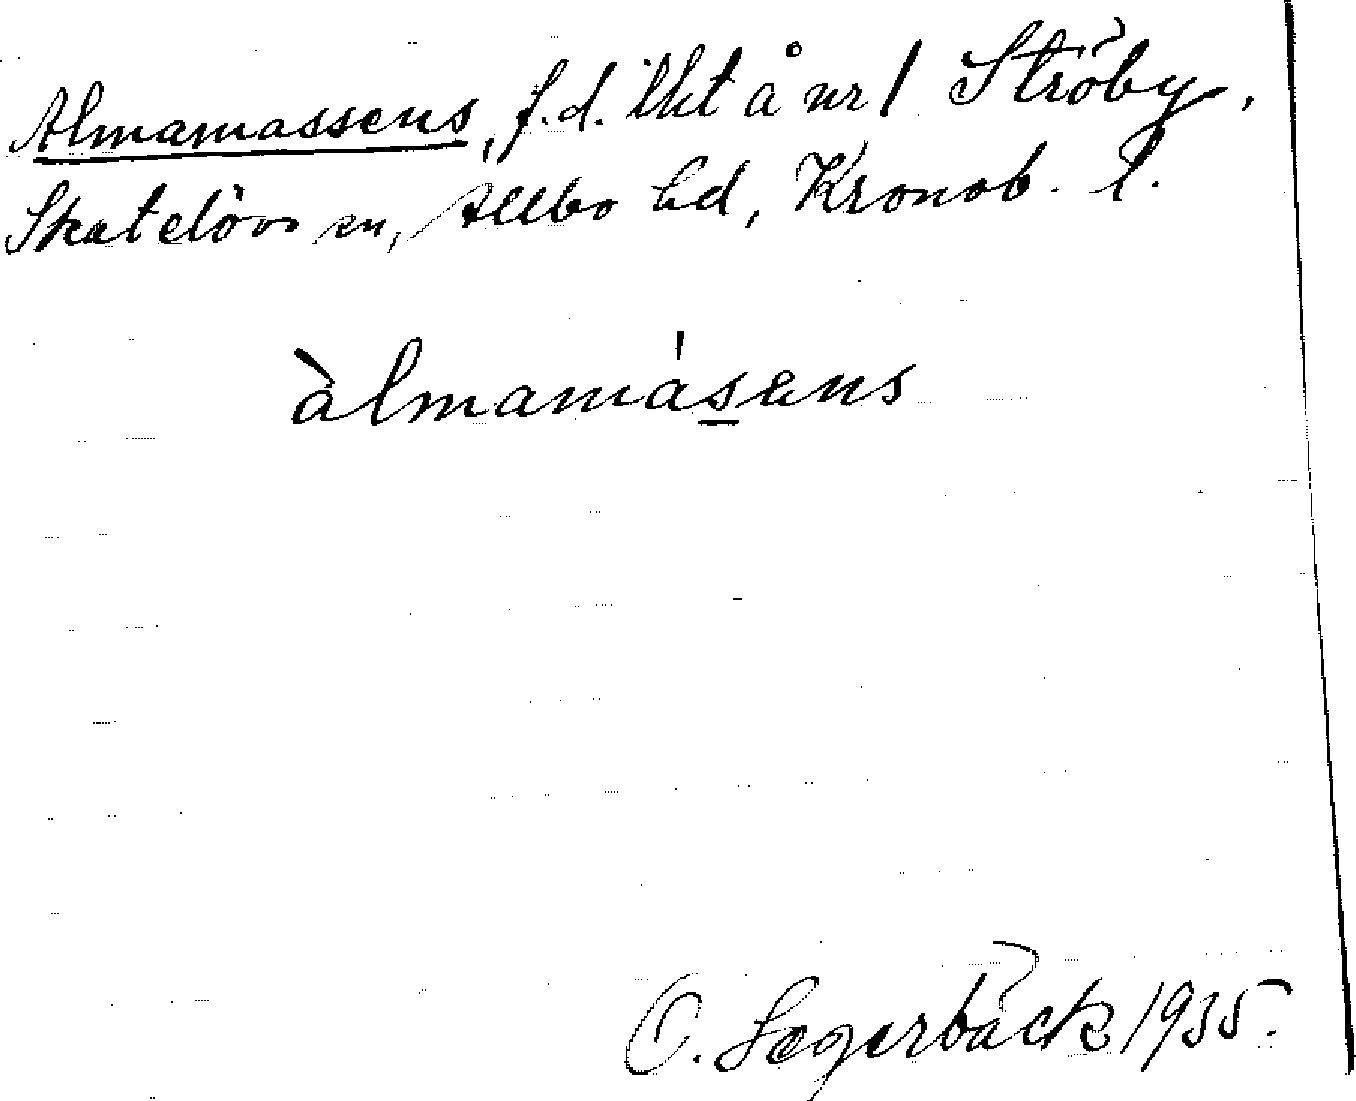 Almamassens, f.d. lht å nr 1 Ströby,
Skatelövs sn, Allbo hd, Kronob. l.
àlmamásens
O. Segerbäck 1935.